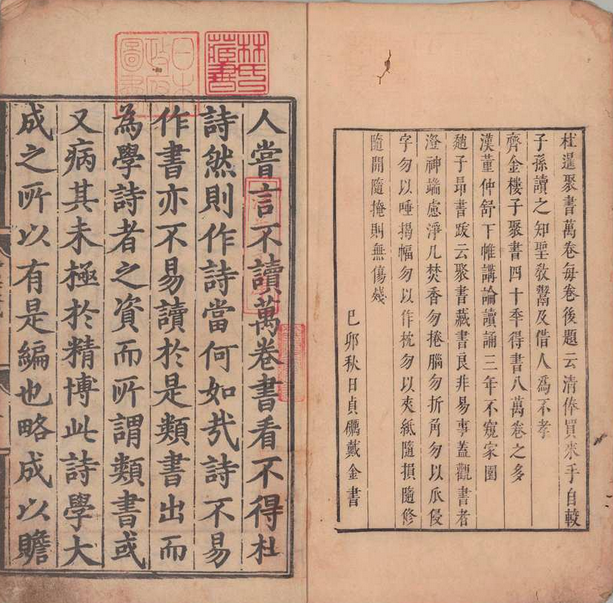 杜暹聚書萬卷每卷後題云清俸買來手自較
子孫讀之知聖敎鬻及借人為不孝
齊金樓子聚書四十季得書八萬卷之多
漢董仲舒下帷講論讀誦三年不窺家園
趙子昂書跋云聚書藏書良非易事蓋觀書者
澄神端慮淨几焚香勿捲腦勿折角勿以爪侵
字勿以唾揭幅勿以作枕勿以夾紙隨損隨修
隨開隨掩則無傷殘
己卯秋日貞礪戴金書
林氏藏書
日本政府圖書
人嘗言不讀萬卷書看不得杜
詩然則作詩當何如㦲詩不易
作書亦不易讀於是類書出而
為學詩者之資而所謂類書或
又病其未極於精博此詩學大
成之所以有是編也略成以贍